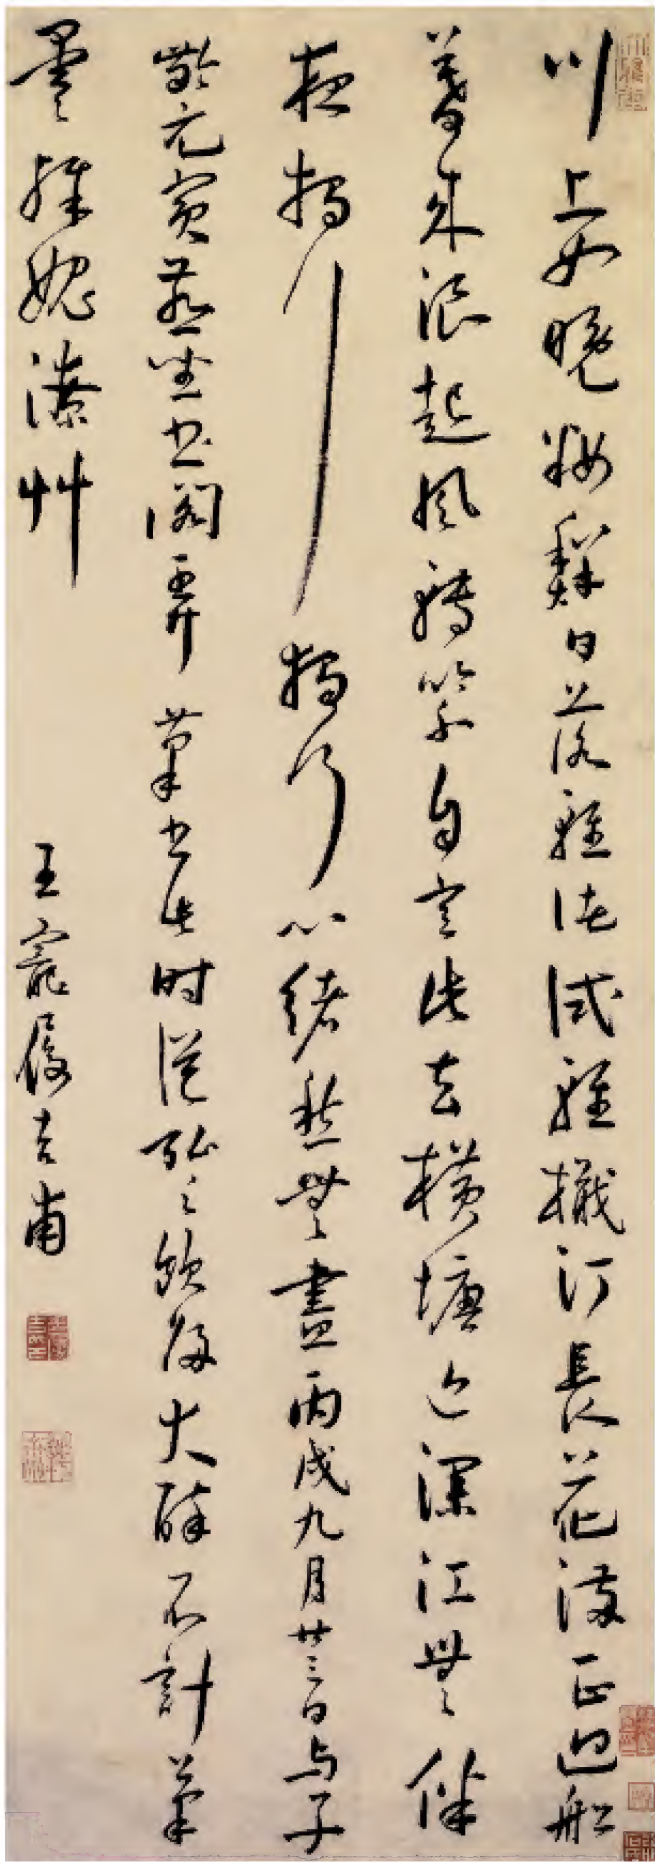 川上女晚粧鮮日落輕渚試輕檝汀長花滿正迴船
暮來浪起風轉緊自言此去橫塘近深江無伴
夜獨行獨行心緒愁無盡丙戌九月廿三日与子
齡元賓燕坐書閣弄筆書此時從弘之飲後大醉不計筆
墨殊媿潦艸
王寵履吉甫